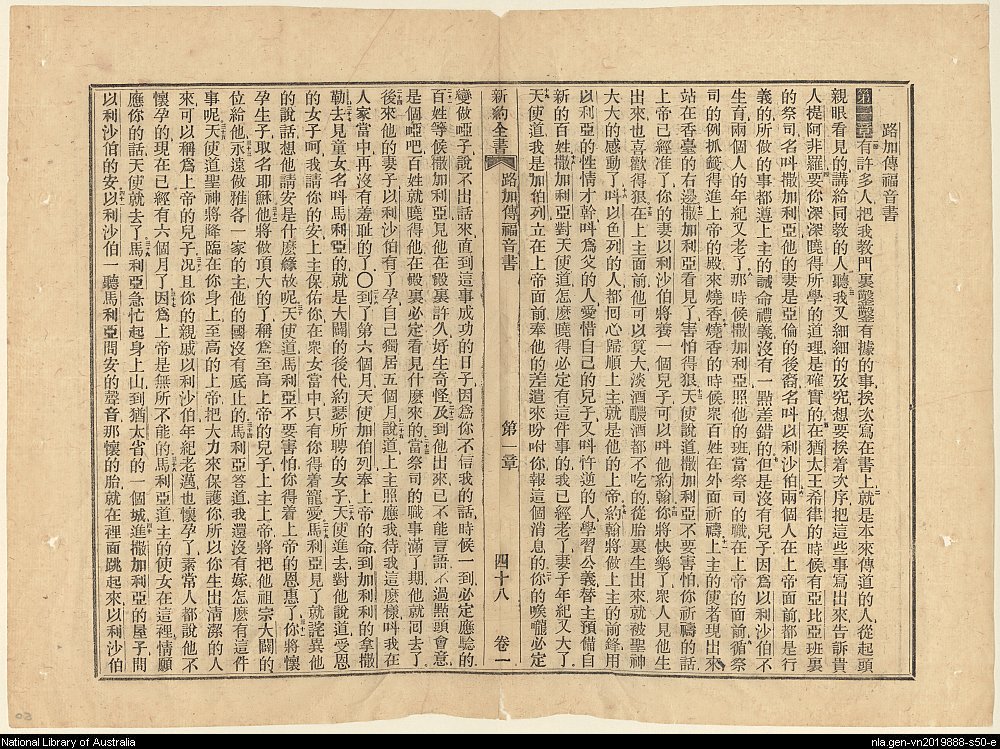 路加傳福音書
第一章有許多人把我教門裏鑿鑿有據的事挨次寫在書上就是本來傳道的人從起頭
親眼看見的講給同教的人聽我又細細的攷究想要挨着次序把這些事寫出來告訴貴
人提阿非羅要你深深曉得所學的道理是確實的在猶太王希律的時候有亞比亞班裏
的祭司名呌撒加利亞他的妻是亞倫的後裔名呌以利沙伯兩個人在上帝面前都是行
義的所做的事都遵上主的誡命禮義沒有一點差錯的但是沒有兒子因爲以利沙伯不
生育兩個人的年紀又老了那時候撒加利亞照他的班當祭司的職在上帝的面前循祭
司的例抓籤得進上帝的殿來燒香燒香的時候衆百姓在外面祈禱上主的使者現出來
站在香臺的右邊撒加利亞看見了害怕得狠天使說道撒加利亞不要害怕你祈禱的話
上帝已經准了你的妻以利沙伯將養一個兒子可以呌他約翰你將快樂了衆人見他生
出來也喜歡得狠在上主面前他可以算大淡酒醲酒都不吃的從胎裏生出來就被聖神
大大的感動了呌以色列的人都囘心歸順上主就是他的上帝約翰將做上主的前鋒用
以利亞的性情才幹呌爲父的人愛惜自己的兒子又呌忤逆的人學習公義替主預備自
新的百姓撒加利亞對天使道怎麽曉得必定有這件事的我已經老了妻子年紀又大了
天使道我是加伯列立在上帝面前奉他的差遣來吩咐你報這個消息的你的喉嚨必定
新約全書 路加傳福音書 第一章 四十八 卷一
變做啞子說不出話來直到這事成功的日子因爲你不信我的話時候一到必定應驗的
百姓等候撒加利亞見他在殿裏許久好生奇怪及到他出來已不能言語不過點頭會意
是個啞吧百姓就曉得他在殿裏必定看見什麽來的當祭司的職事滿了期他就囘去了
後來他的妻子以利沙伯有了孕自己獨居五個月說道上主照應我待我這麽樣呌我在
人家當中再沒有羞耻的了〇到了第六個月天使加伯列奉上帝的命到加利利的拿撒
勒去見童女名呌馬利亞的就是大闢的後代約瑟所聘的女子天使進去對他說道受恩
的女子呵我請你的安上主保佑你在衆女當中只有你得着寵愛馬利亞見了就詫異他
的說話想他請安是什麽緣故呢天使道馬利亞不要害怕你得着上帝的恩惠了你將懷
孕生子取名耶穌他將做頂大的了稱爲至高上帝的兒子上主上帝將把他祖宗大闢的
位給他永遠做雅各一家的主他的國沒有底止的馬利亞答道我還沒有嫁怎麽有這件
事呢天使道聖神將降臨在你身上至高的上帝把大力來保護你所以你生出淸潔的人
來可以稱爲上帝的兒子况且你的親戚以利沙伯年紀老邁也懷孕了素常人都說他不
懷孕的現在已經有六個月了因爲上帝是無所不能的馬利亞道主的使女在這裡情願
應你的話天使就去了馬利亞急忙起身上山到猶太省的一個城進撒加利亞的屋子問
以利沙伯的安以利沙伯一聽馬利亞問安的聲音那懷的胎就在裡面跳起來以利沙伯
03
National Library of Australia
nla.gen-vn2019888-s50-e